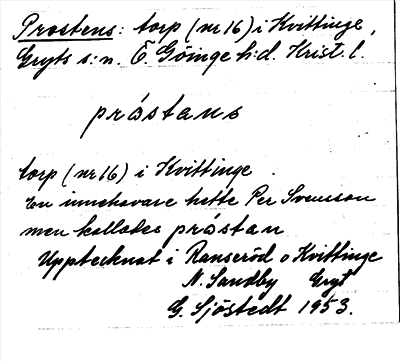 Prostens: torp (nr 16) i Kvittinge,
Gryts s:n. Ö. Göinge h:d. Krist. l.
próstans
torp (nr 16) i Kvittinge
En innehavare hette Per Svensson
men kallades próstan
Upptecknat i Ranseröd o Kvittinge
N. Sandby Gryt
G. Sjöstedt 1953.